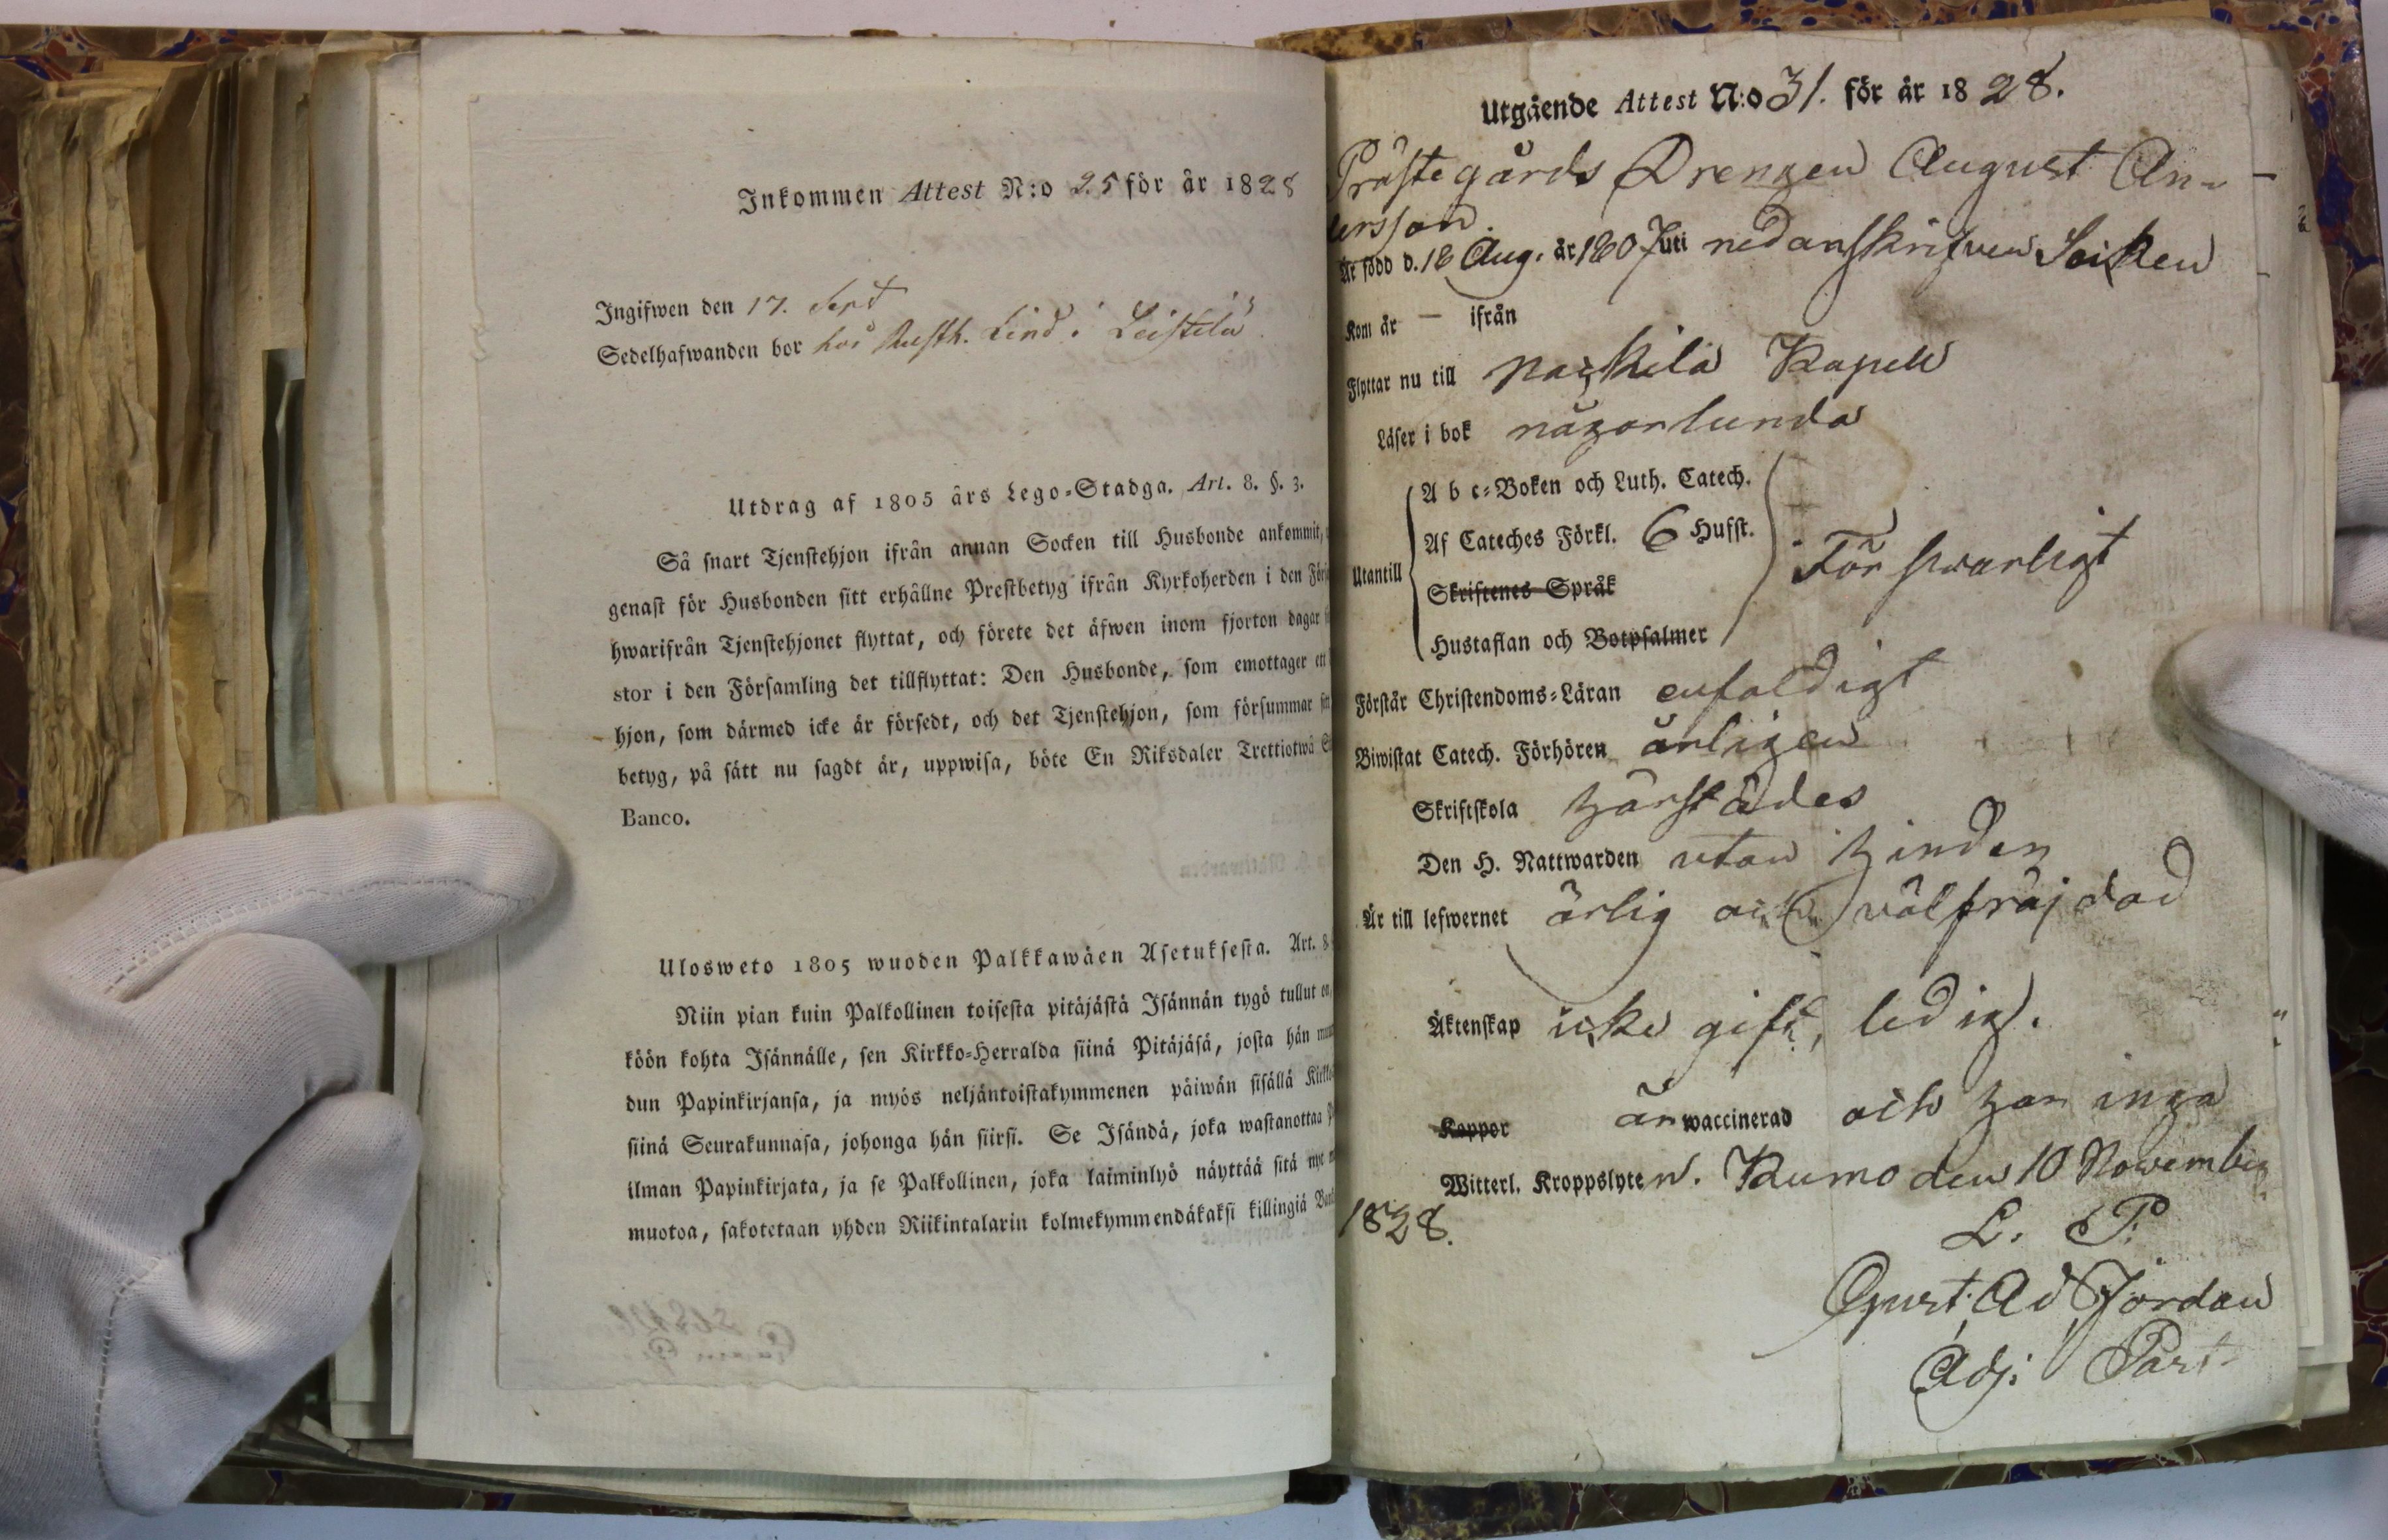 Inkommen Attest N:o 25 för år 1828
Ingifwen den 17. Sept
Sedelhafwanden bor hos Rusth. Lind i Leistilä
Utdrag af 1805 års Lego-Stadga. Art. 8. §. 3.
Så snart Tjenstehjon ifrån annan Socken till Husbonde ankommit,
genast för Husbonden sitt erhållne Prestbetyg ifrån Kyrkoherden i den
hwarifrån Tjenstehjonet flyttat, och förete det äfwen inom fjorton dagar
stor i den Församling det tillflyttat: Den Husbonde, som emottager
hjon, som därmed icke är försedt, och det Tjenstehjon, som försummar
betyg, på sätt nu sagdt är, uppwisa, böte En Riksdaler Trettiotwå
Banco.
Ulosweto 1805 wuoden Palkkawäen Asetuksesta. Art. 8
Niin pian kuin Palkollinen toisesta pitäjästä Isännän tygö tullut on,
köön kohta Isännälle, sen Kirkko-Herralda siinä Pitäjäsä, josta hän
dun Papinkirjansa, ja myös neljäntoistakymmenen päiwän sisällä
siinä Seurakunnasa, johonga hän siirsi. Se Isändä, joka wastanottaa
ilman Papinkirjata, ja se Palkollinen, joka laiminlyö näyttää sitä
muotoa, sakotetaan yhden Riikintalarin kolmekymmendäkaksi killingiä
Utgående Attest N:o 31. för år 1828.
Prästegårds Drengen August An-
dersson.
Är född d. 18 Aug. år 1807 uti nedanskrifven Socken
Kom år — ifrån
Flyttar nu till Nackila Kapell
Läser i bok någorlunda
Utantill
A b c-Boken och Luth. Catech.
Af Cateches Förkl. 6 Hufst.
Skriftenes Språk
Hustaflan och Botpsalmer
Försvarligt
Förstår Christendoms-Läran enfaldigt
Biwistat Catech. Förhören årligen
Skriftskola härstädes
Den H. Nattwarden utan hinder
Är till lefwernet ärlig och välfräjdad
Äktenskap icke gift, ledig.
Koppor är waccinerad och har inga
Witterl. Kroppslyten. Kumo den 10 November
1828.
L. P.
Gust. Ad Jordan
Adj: Past.